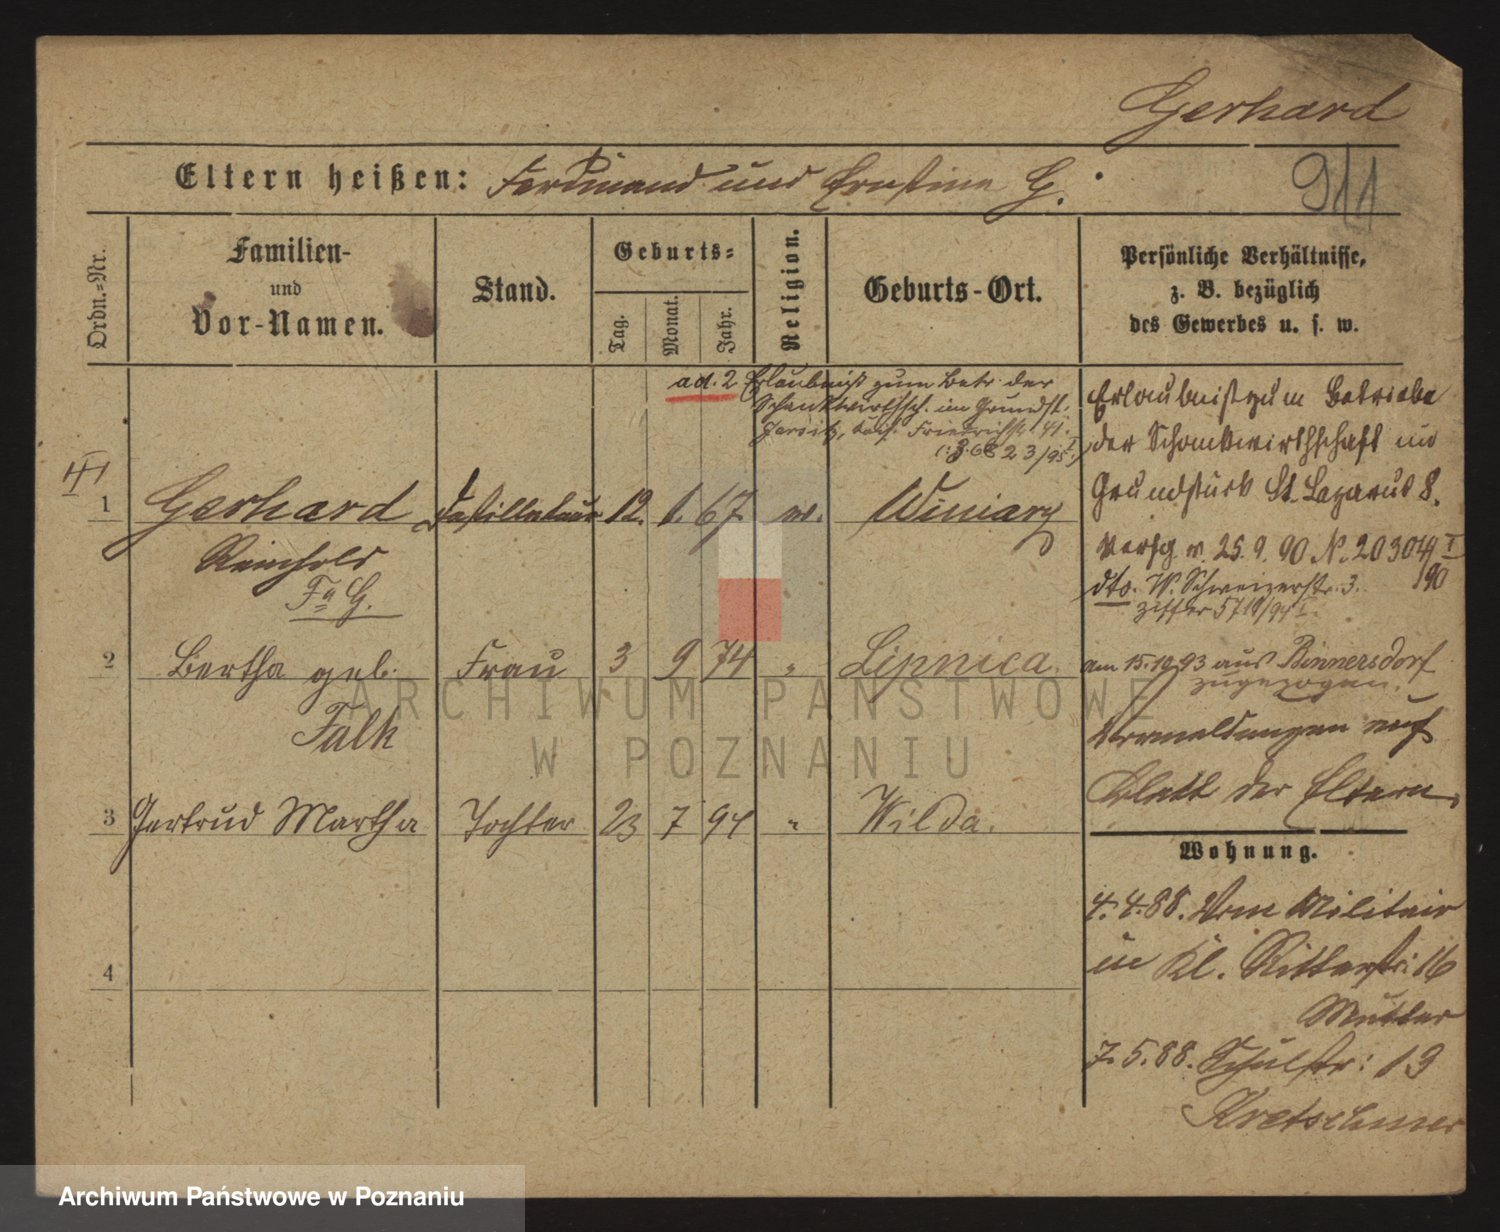 Gerhard
Eltern heißen: Ferdinand und Ernstine G.
911
Ordn.-Nr.
Familien-
und
Vor-Namen.
Stand.
Geburts-
Tag.
Monat.
Jahr.
Religion.
Geburts-Ort.
Persönliche Verhältnisse,
z. B. bezüglich
des Gewerbes u. s. w.
ad. 2 Erlaubniß zum Betr. der
Schankwirthsch. im Grundst.
Jersitz, Friedrichstr. 41.
Erlaubniß zum Betriebe
der Schankwirthschaft im
Grundstück St. Lazarus 8.
Verfg v. 25. 9. 90 N. 20304 I
90
dto. W. Schweizerstr. 3.
1 Gerhard Destillateur 12. 1. 67 ev. Winiary
Reinhold
Fa G.
2 Bertha geb. Frau 3 9 74 " Lipnica.
Falk
am 15.10.93 aus Binnersdorf
zugezogen.
Vermeldungen auf
Blatt der Eltern.
3 Gertrud Martha Tochter 23 7 94 " Wilda.
4
Wohnung.
4. 4. 88. Vom Militair
in Kl. Ritterstr: 16
Mutter
7. 5. 88. Schulstr: 19
Kretschmer
ARCHIWUM PAŃSTWOWE
W POZNANIU
Archiwum Państwowe w Poznaniu